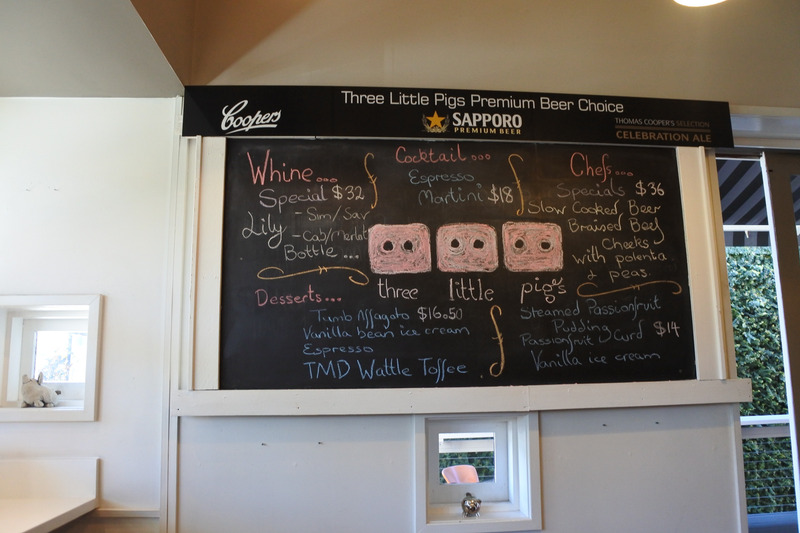 Three Little Pigs Premium Beer Choice
Coopers
SAPPORO
PREMIUM BEER
THOMAS COOPER'S SELECTION
CELEBRATION ALE
Whine...
Special $32
Lily - Sim/Sav
- Cab/Merlot
Bottle...
Cocktail...
Espresso
Martini $18
Chefs...
Specials $36
Slow Cooked Beer
Braised Beef
Cheeks
with polenta
& peas.
three little pigs
Desserts...
Timb Affagato $16.50
Vanilla bean ice cream
Espresso
TMD Wattle Toffee
Steamed Passionfruit
Pudding
Passionfruit Curd $14
Vanilla ice cream